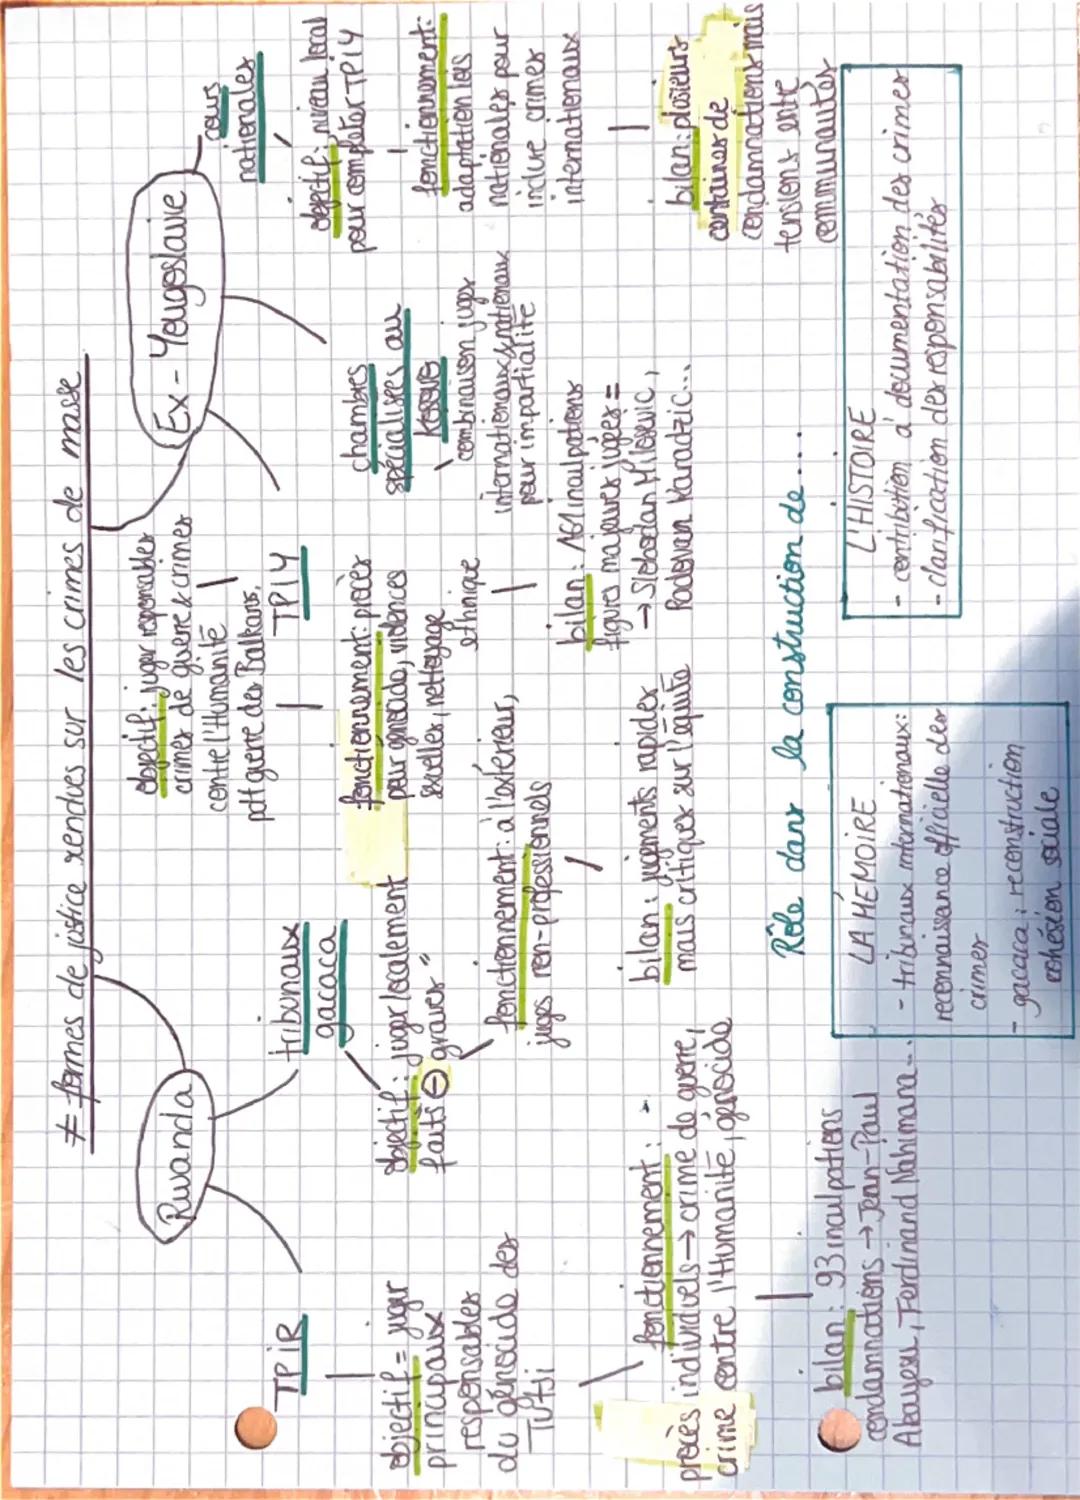 ≠ formes de justice rendues sur les crimes de masse
Rwanda
TPIR
objectif = juger
principaux
responsables
du génocide des
Tutsi
fonctionnement :
procès individuels → crime de guerre,
crime contre l'Humanité, génocide
bilan : 93 inculpations
condamnations → Jean-Paul
Akayesu, Ferdinand Nahimana...
tribunaux
gacaca
objectif : juger localement
faits ⊖ graves"
fonctionnement : à l'extérieur,
juges non-professionnels
bilan : jugements rapides
mais critiques sur l'équité
Ex-Yougoslavie
TPIY
objectif : juger responsables
crimes de guerre & crimes
contre l'Humanité
pdt guerre des Balkans.
fonctionnement : procès
pour génocide, violences
sexuelles, nettoyage
ethnique
bilan : 161 inculpations
figures majeures jugées =
→ Slobodan Milosevic,
Radovan Karadzic...
chambres
spécialisées au
Kosovo
combinaison juges
internationaux & nationaux
pour impartialité
cours
nationales
objectif : niveau local
pour compléter TPIY
fonctionnement :
adaptation lois
nationales pour
inclure crimes
internationaux
bilan : plusieurs
centaines de
condamnations mais
tensions entre
communautés
Rôle dans la construction de ...
LA MÉMOIRE
- tribunaux internationaux :
reconnaissance officielle des
crimes
- gacaca : reconstruction
cohésion sociale
L'HISTOIRE
- contribution à documentation des crimes
- clarification des responsabilités